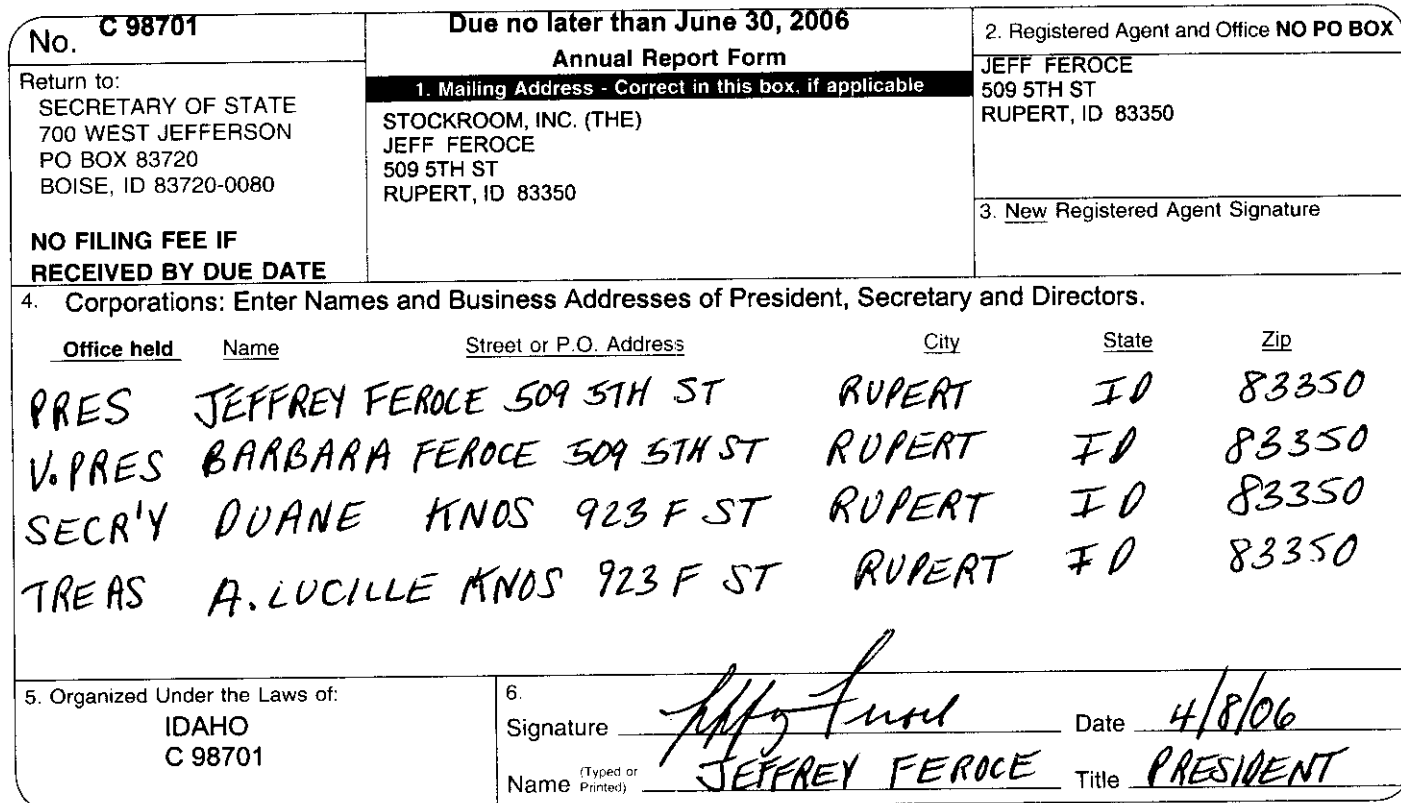 No. C 98701
Return to:
SECRETARY OF STATE
700 WEST JEFFERSON
PO BOX 83720
BOISE, ID 83720-0080
NO FILING FEE IF
RECEIVED BY DUE DATE
Due no later than June 30, 2006
Annual Report Form
1. Mailing Address - Correct in this box, if applicable
STOCKROOM, INC. (THE)
JEFF FEROCE
509 5TH ST
RUPERT, ID 83350
2. Registered Agent and Office NO PO BOX
JEFF FEROCE
509 5TH ST
RUPERT, ID 83350
3. New Registered Agent Signature
4. Corporations: Enter Names and Business Addresses of President, Secretary and Directors.
Office held Name Street or P.O. Address City State Zip
PRES JEFFREY FEROCE 509 5TH ST RUPERT ID 83350
V. PRES BARBARA FEROCE 509 5TH ST RUPERT ID 83350
SECR'Y DUANE KNOS 923 F ST RUPERT ID 83350
TREAS A. LUCILLE KNOS 923 F ST RUPERT ID 83350
5. Organized Under the Laws of:
IDAHO
C 98701
6.
Signature Date 4/8/06
Name (Typed or Printed) JEFFREY FEROCE Title PRESIDENT